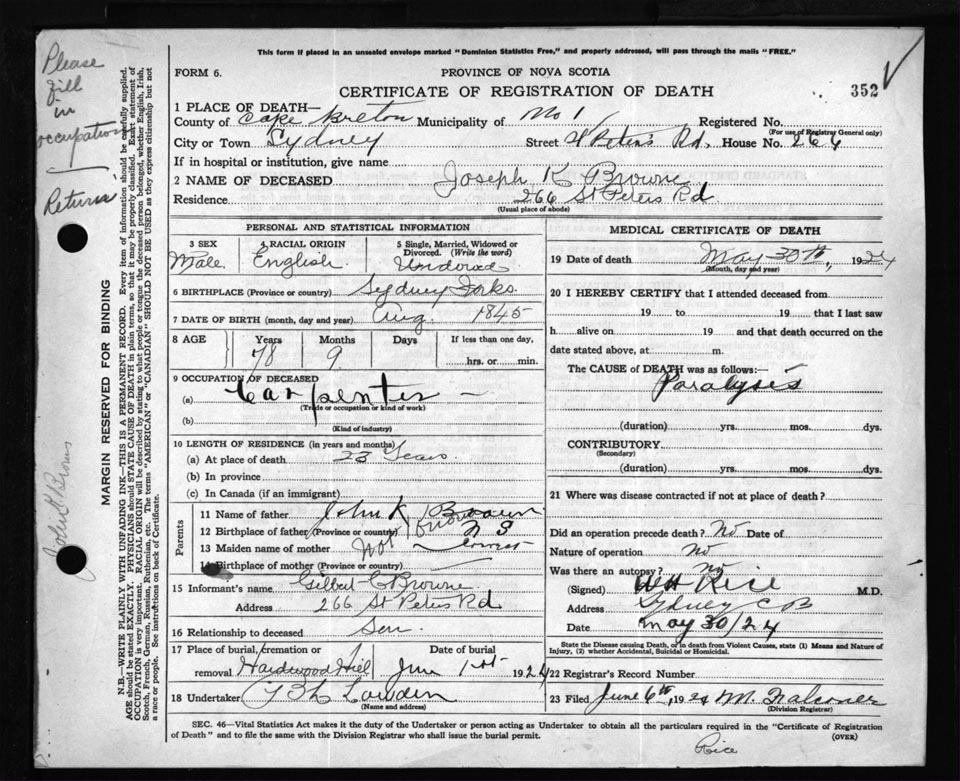 This form if placed in an unsealed envelope marked "Dominion Statistics Free," and properly addressed, will pass through the mails "FREE."
Please fill in occupation
Return
FORM 6.
PROVINCE OF NOVA SCOTIA
CERTIFICATE OF REGISTRATION OF DEATH
352
1 PLACE OF DEATH—
County of Cape Breton Municipality of No 1 Registered No.
(For use of Registrar General only)
City or Town Sydney Street St Peters Rd. House No. 266
If in hospital or institution, give name
2 NAME OF DECEASED Joseph K Browne
Residence 266 St Peters Rd
(Usual place of abode)
PERSONAL AND STATISTICAL INFORMATION
3 SEX
Male
4 RACIAL ORIGIN
English
5 Single, Married, Widowed or Divorced. (Write the word)
6 BIRTHPLACE (Province or country) Sydney Forks
7 DATE OF BIRTH (month, day and year) Aug. 1845
8 AGE
Years Months Days If less than one day,
78 9 hrs. or min.
9 OCCUPATION OF DECEASED
(a) Carpenter
(Trade or occupation or kind of work)
(b)
(Kind of industry)
10 LENGTH OF RESIDENCE (in years and months)
(a) At place of death 23 Years
(b) In province
(c) In Canada (if an immigrant)
Parents
11 Name of father John K Brown
12 Birthplace of father (Province or country) N S
13 Maiden name of mother Not known
14 Birthplace of mother (Province or country)
15 Informant's name Gilbert C Browne
Address 266 St Peters Rd
16 Relationship to deceased Son
17 Place of burial, cremation or removal Hardwood Hill June 1st 1924
18 Undertaker
(Name and address)
MEDICAL CERTIFICATE OF DEATH
19 Date of death May 30th, 1924
(Month, day and year)
20 I HEREBY CERTIFY that I attended deceased from
19 to 19 that I last saw
h alive on 19 and that death occurred on
date stated above, at m.
The CAUSE of DEATH was as follows:—
Paralysis
(duration) yrs. mos. dys.
CONTRIBUTORY.
(Secondary)
(duration) yrs. mos. dys.
21 Where was disease contracted if not at place of death?
Did an operation precede death? No Date of
Nature of operation no
Was there an autopsy? no
(Signed) Rice M.D.
Address Sydney C B
Date May 30/24
State the Disease causing Death, or in death from Violent Causes, state (1) Means and Nature of Injury, (2) whether Accidental, Suicidal or Homicidal.
22 Registrar's Record Number
23 Filed June 6th, 1924 M. Falconer
(Division Registrar)
SEC. 46—Vital Statistics Act makes it the duty of the Undertaker or person acting as Undertaker to obtain all the particulars required in the "Certificate of Registration
of Death" and to file the same with the Division Registrar who shall issue the burial permit.
(OVER)
Rice
MARGIN RESERVED FOR BINDING
N.B.—WRITE PLAINLY WITH UNFADING INK—THIS IS A PERMANENT RECORD. Every item of information should be carefully supplied.
AGE should be stated EXACTLY. PHYSICIANS should STATE CAUSE OF DEATH in plain terms, so that it may be properly classified. Exact statement of
OCCUPATION is very important. RACIAL ORIGIN will be described by stating to what people or tongue the deceased person belonged, whether English, Irish,
Scotch, French, German, Russian, Ruthenian, etc. The terms "AMERICAN" or "CANADIAN" SHOULD NOT BE USED as they express citizenship but not
a race or people. See instructions on back of Certificate.